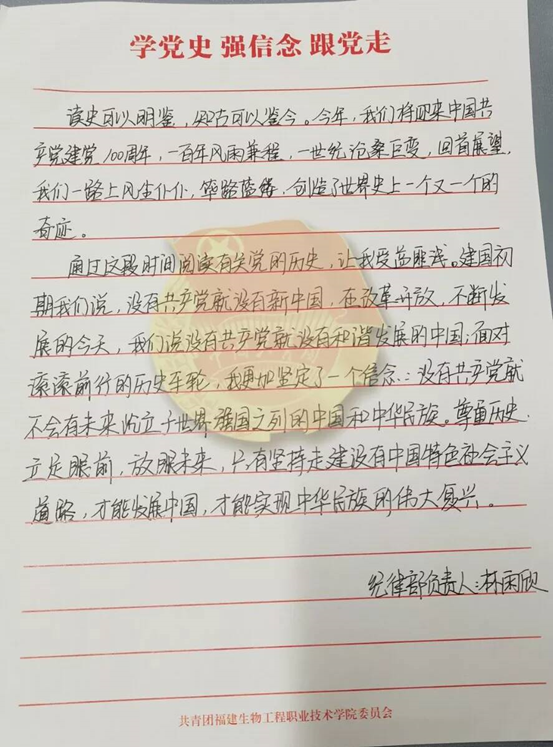 学党史 强信念 跟党走
读史可以明鉴，知古可以鉴今。今年，我们将迎来中国共
产党建党100周年，一百年风雨兼程，一世纪沧桑巨变，回首展望，
我们一路上风尘仆仆，筚路蓝缕，创造了世界史上一个又一个的
奇迹。
通过这段时间阅读有关党的历史，让我受益匪浅。建国初
期我们说，没有共产党就没有新中国，在改革开放，不断发
展的今天，我们说没有共产党就没有和谐发展的中国；面对
滚滚前行的历史车轮，我更加坚定了一个信念：：没有共产党就
不会有未来屹立于世界强国之列的中国和中华民族。尊重历史，
立足眼前，放眼未来，只有坚持走建设有中国特色社会主义
道路，才能发展中国，才能实现中华民族的伟大复兴。
纪律部负责人：林雨欣
共青团福建生物工程职业技术学院委员会